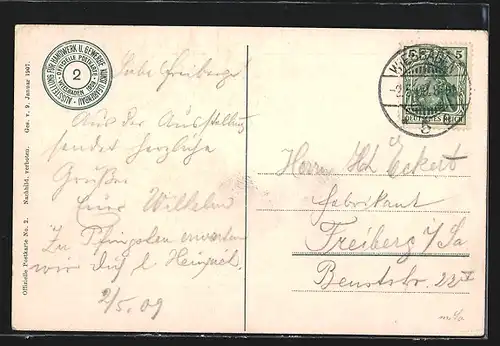 AUSSTELLUNG FÜR HANDWERK U. GEWERBE KUNST U. GARTENBAU
OFFICIELLE POSTKARTE
2
WIESBADEN 1909
Officielle Postkarte No. 2. Nachbild. verboten. Ges. v. 9. Januar 1907.
Liebe Freiberger
Aus der Ausstellung
sendet herzliche
Grüße
Euer Wilhelm
Zu Pfingsten erwarten
wir Dich l.
2/5.09
WIESBADEN
5
DEUTSCHES REICH
Herrn Eckert
Fabrikant
Freiberg i/Sa
Beuststr. 22